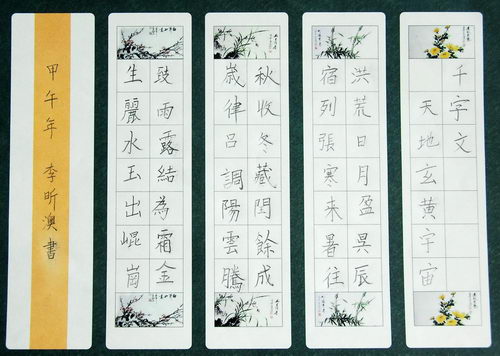 千字文
天地玄黄宇宙
洪荒日月盈昃辰
宿列張寒来暑往
秋收冬藏閏餘成
歲律呂調陽雲騰
致雨露結為霜金
生麗水玉出崐崗
甲午年 李昕澳書